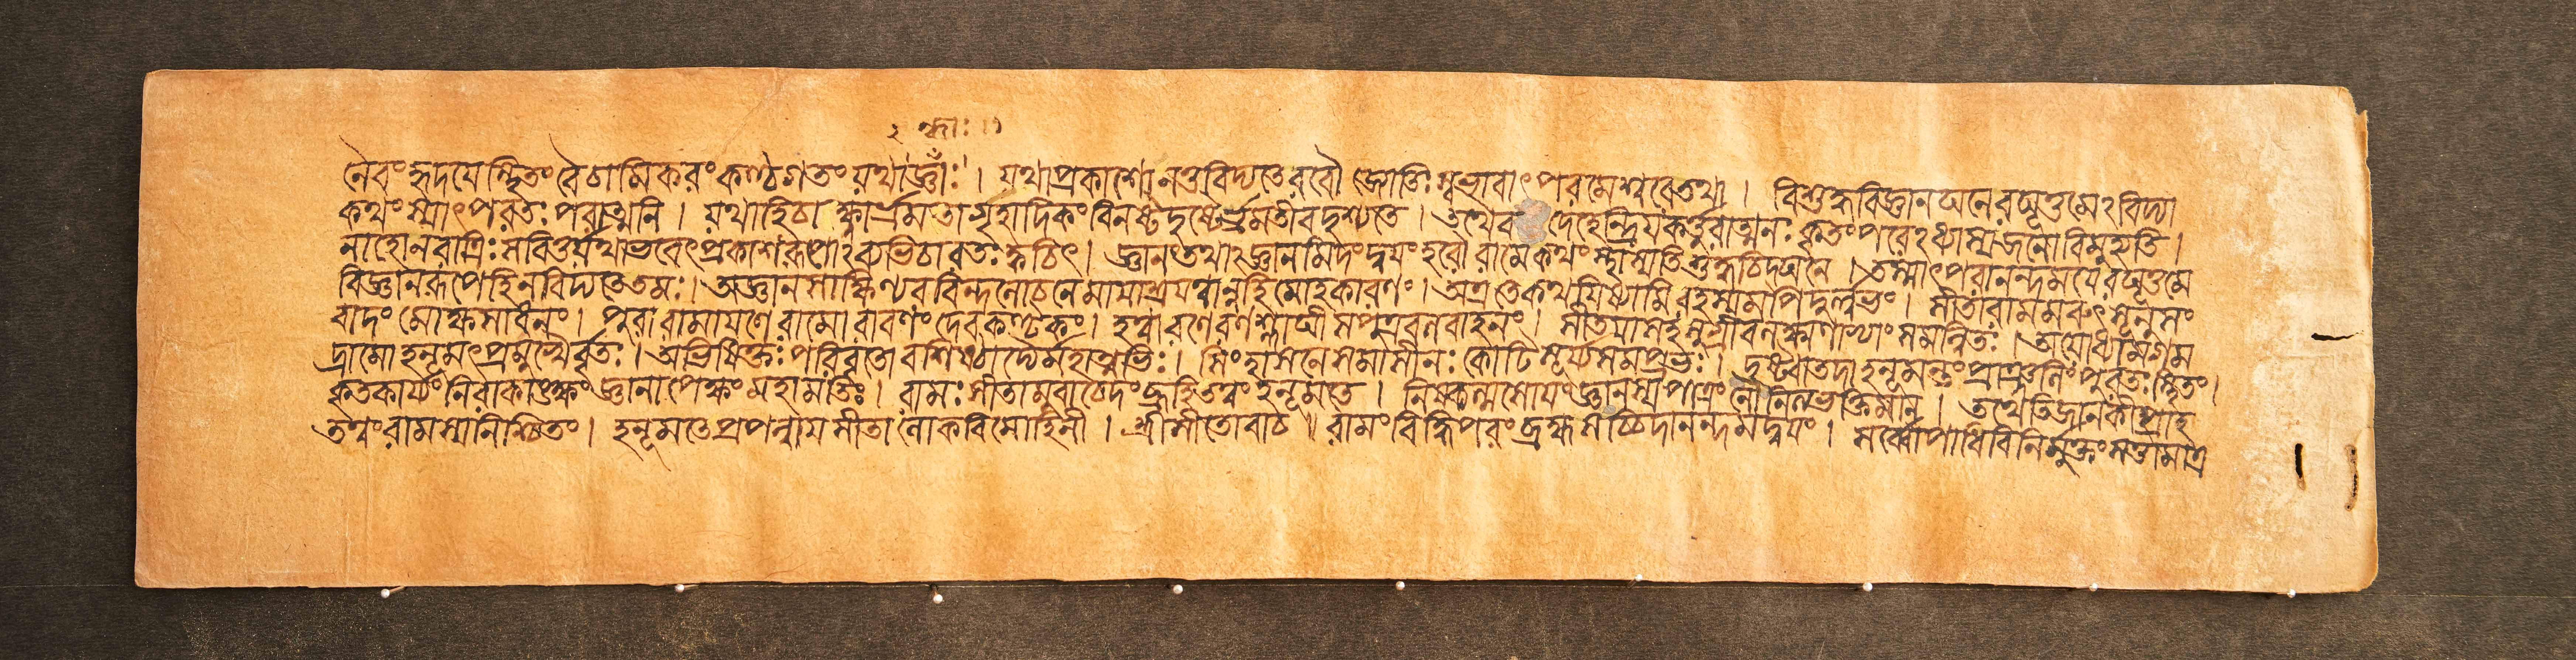 ২ হ্মাঃ ॥
নৈবং হৃদয়ে স্থিতং বৈ চামিকরং কণ্ঠগতং যথাজ্ঞাঁঃ । যথাপ্রকাশো ন তু বিদ্যতে রবৌ জ্যোতিঃস্বভাবাৎ পরমেশ্বরে তথা । বিশুদ্ধবিজ্ঞানঘনে রঘূত্তমেঽবিদ্যা
কথং স্যাৎ পরতঃ পরাত্মনি । যথা হি চাক্ষ্ণা ভ্রমতা গৃহাদিকং বিনষ্টদৃষ্টের্ভ্রমতীব দৃশ্যতে । তথৈব দেহেন্দ্রিয়কর্ত্তুরাত্মনঃ কৃতং পরেঽধ্যাস্য জনো বিমুহ্যতি ।
নাহো ন রাত্রিঃ সবিতুর্যথা ভবেৎ প্রকাশরূপোঽব্যভিচারতঃ ক্বচিৎ । জ্ঞানং তথাঽজ্ঞানমিদং দ্বয়ং হরৌ রামে কথং স্থাস্যতি শুদ্ধচিদ্ঘনে । তস্মাৎ পরানন্দময়ে রঘূত্তমে
বিজ্ঞানরূপে হি ন বিদ্যতে তমঃ । অজ্ঞানসাক্ষিণ্যরবিন্দলোচনে মায়াশ্রয়ত্বান্ন হি মোহকারণং । অত্র তে কথয়িষ্যামি রহস্যমপি দুর্ল্লভং । সীতারামমরুৎসূনুসং
বাদং মোক্ষসাধনং । পুরা রামায়ণে রামো রাবণং দেবকণ্টকং । হত্বা রণে রণশ্লাঘী সপুত্রবলবাহনং । সীতয়া সহ সুগ্রীবলক্ষ্মণাভ্যাং সমন্বিতং । অযোধ্যামগম
দ্রামো হনূমৎপ্রমুখৈর্বৃতঃ । অভিষিক্তঃ পরিবৃতো বশিষ্ঠাদ্যৈর্মহাত্মভিঃ । সিংহাসনে সমাসীনঃ কোটিসূর্য্যসমপ্রভঃ । দৃষ্ট্বা তদা হনূমন্তং প্রাঞ্জলিং পুরতঃ স্থিতং ।
কৃতকার্য্যং নিরাকাংক্ষং জ্ঞানাপেক্ষং মহামতিং । রামঃ সীতামুবাচেদং ব্রূহি তত্ত্বং হনূমতে । নিষ্কল্মষোয়ং জ্ঞানস্য পাত্রং নৌ নিত্যভক্তিমান্ । তথেতি জানকী প্রাহ
তত্ত্বং রামস্য নিশ্চিতং । হনূমতে প্রপন্নায় সীতা লোকবিমোহিনী । শ্রীসীতোবাচ । রামং বিদ্ধি পরং ব্রহ্ম সচ্চিদানন্দমদ্বয়ং । সর্ব্বোপাধিবিনির্মুক্তং সত্তামাত্র